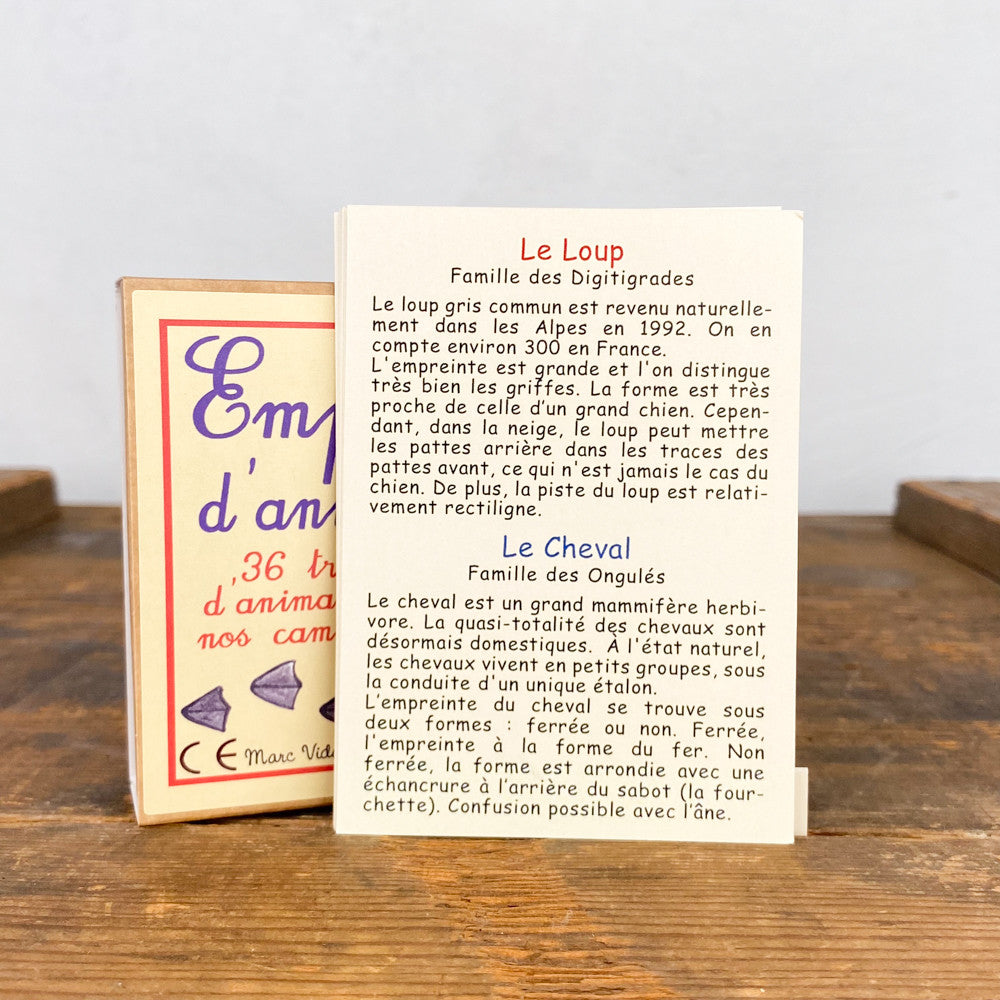 Le Loup
Famille des Digitigrades
Le loup gris commun est revenu naturelle-
ment dans les Alpes en 1992. On en
compte environ 300 en France.
L'empreinte est grande et l'on distingue
très bien les griffes. La forme est très
proche de celle d'un grand chien. Cepen-
dant, dans la neige, le loup peut mettre
les pattes arrière dans les traces des
pattes avant, ce qui n'est jamais le cas du
chien. De plus, la piste du loup est relati-
vement rectiligne.
Le Cheval
Famille des Ongulés
Le cheval est un grand mammifère herbi-
vore. La quasi-totalité des chevaux sont
désormais domestiques. À l'état naturel,
les chevaux vivent en petits groupes, sous
la conduite d'un unique étalon.
L'empreinte du cheval se trouve sous
deux formes : ferrée ou non. Ferrée,
l'empreinte à la forme du fer. Non
ferrée, la forme est arrondie avec une
échancrure à l'arrière du sabot (la four-
chette). Confusion possible avec l'âne.
Emp
d'an
36 tr
d'anima
nos cam
CE Marc Vid